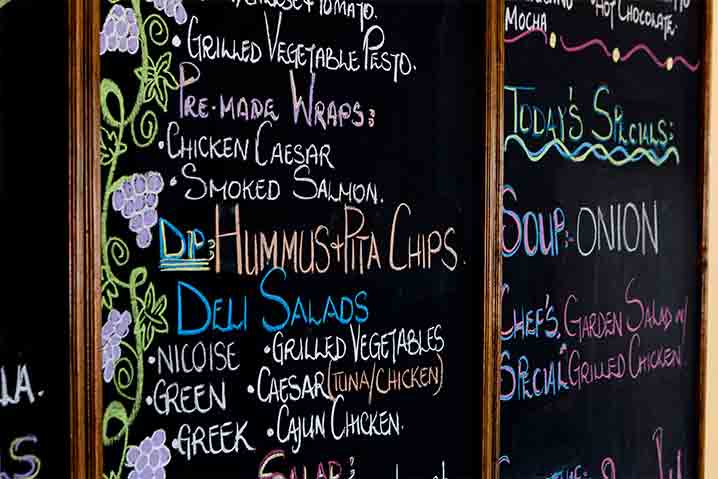 & TOMATO.
• GRILLED VEGETABLE PESTO.
PRE-MADE WRAPS:
• CHICKEN CAESAR
• SMOKED SALMON.
DIP: HUMMUS + PITA CHIPS.
DELI SALADS
• NICOISE • GRILLED VEGETABLES
• GREEN • CAESAR (TUNA/CHICKEN)
• GREEK • CAJUN CHICKEN.
MOCHA • HOT CHOCOLATE.
TODAY'S SPECIALS:
SOUP:- ONION
CHEF'S GARDEN SALAD W/
SPECIAL GRILLED CHICKEN